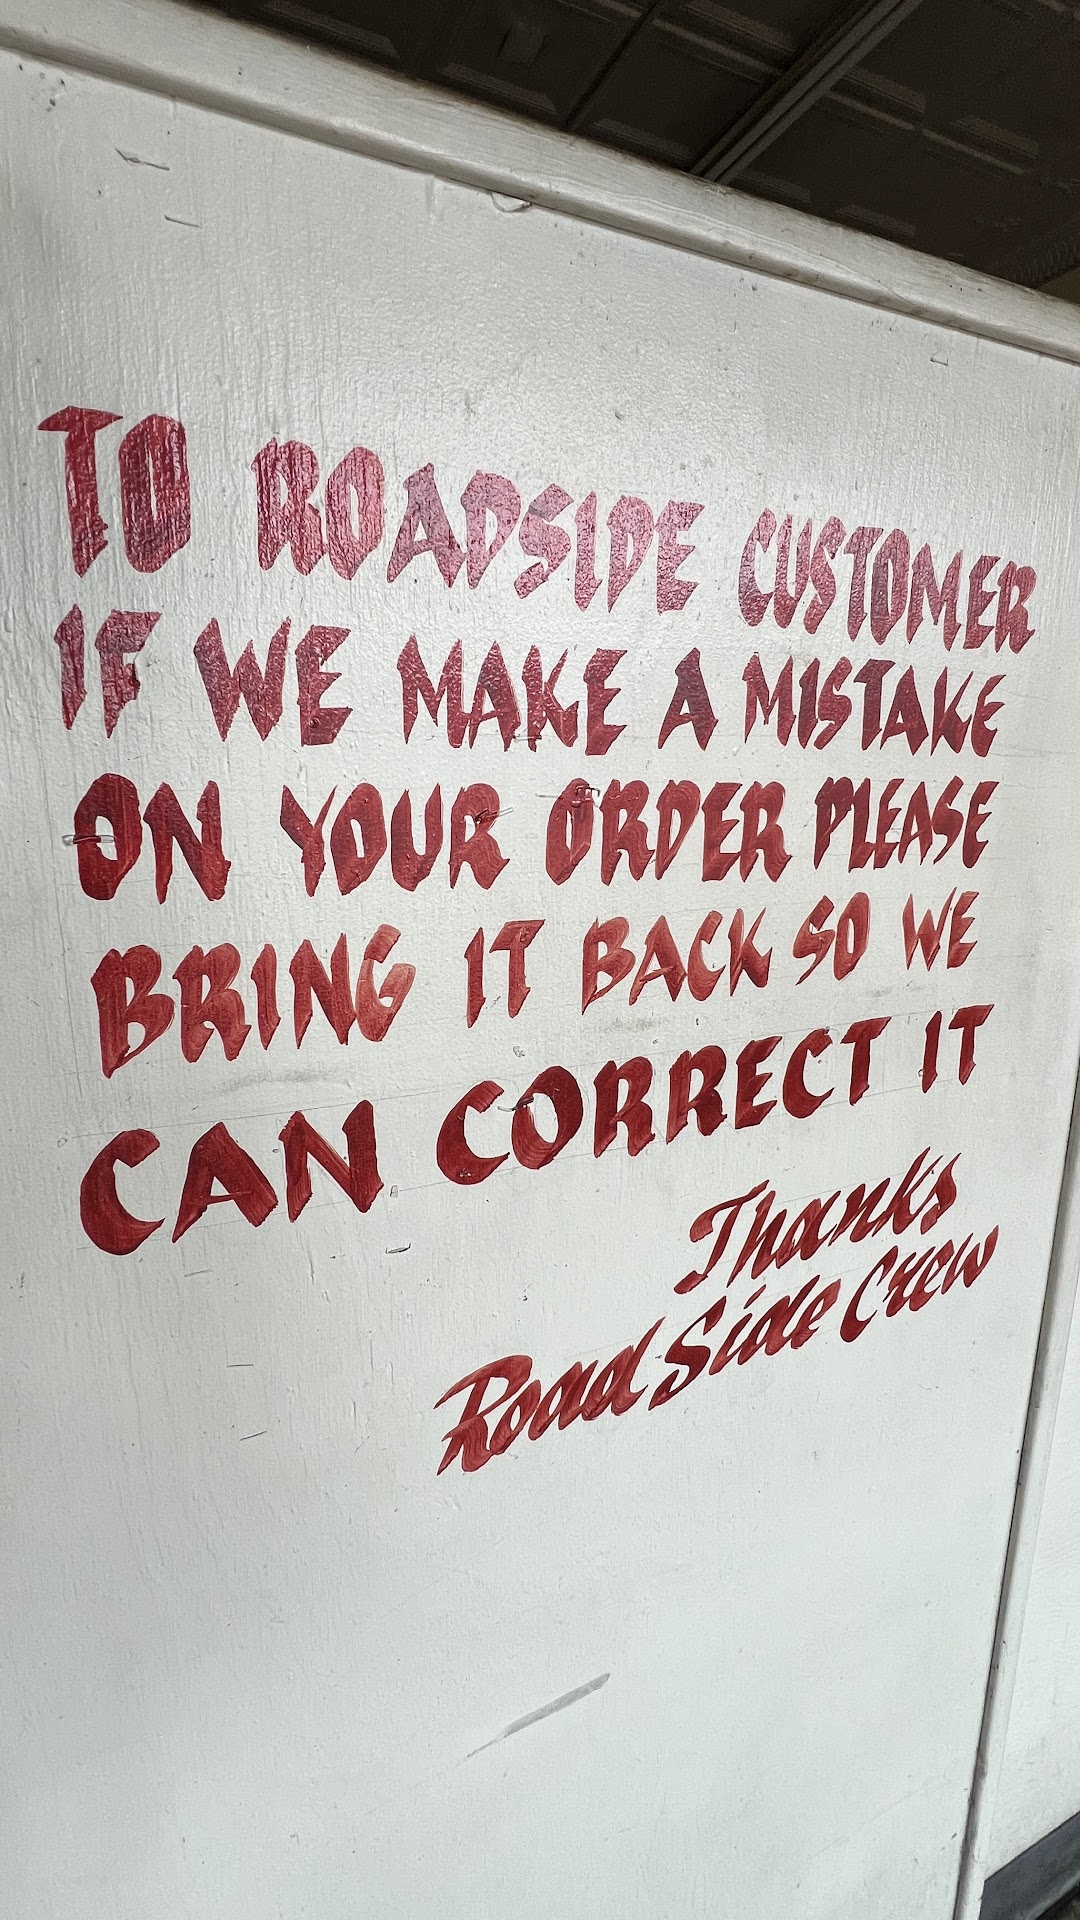 TO ROADSIDE CUSTOMER
IF WE MAKE A MISTAKE
ON YOUR ORDER PLEASE
BRING IT BACK SO WE
CAN CORRECT IT
Thanks
Road Side Crew